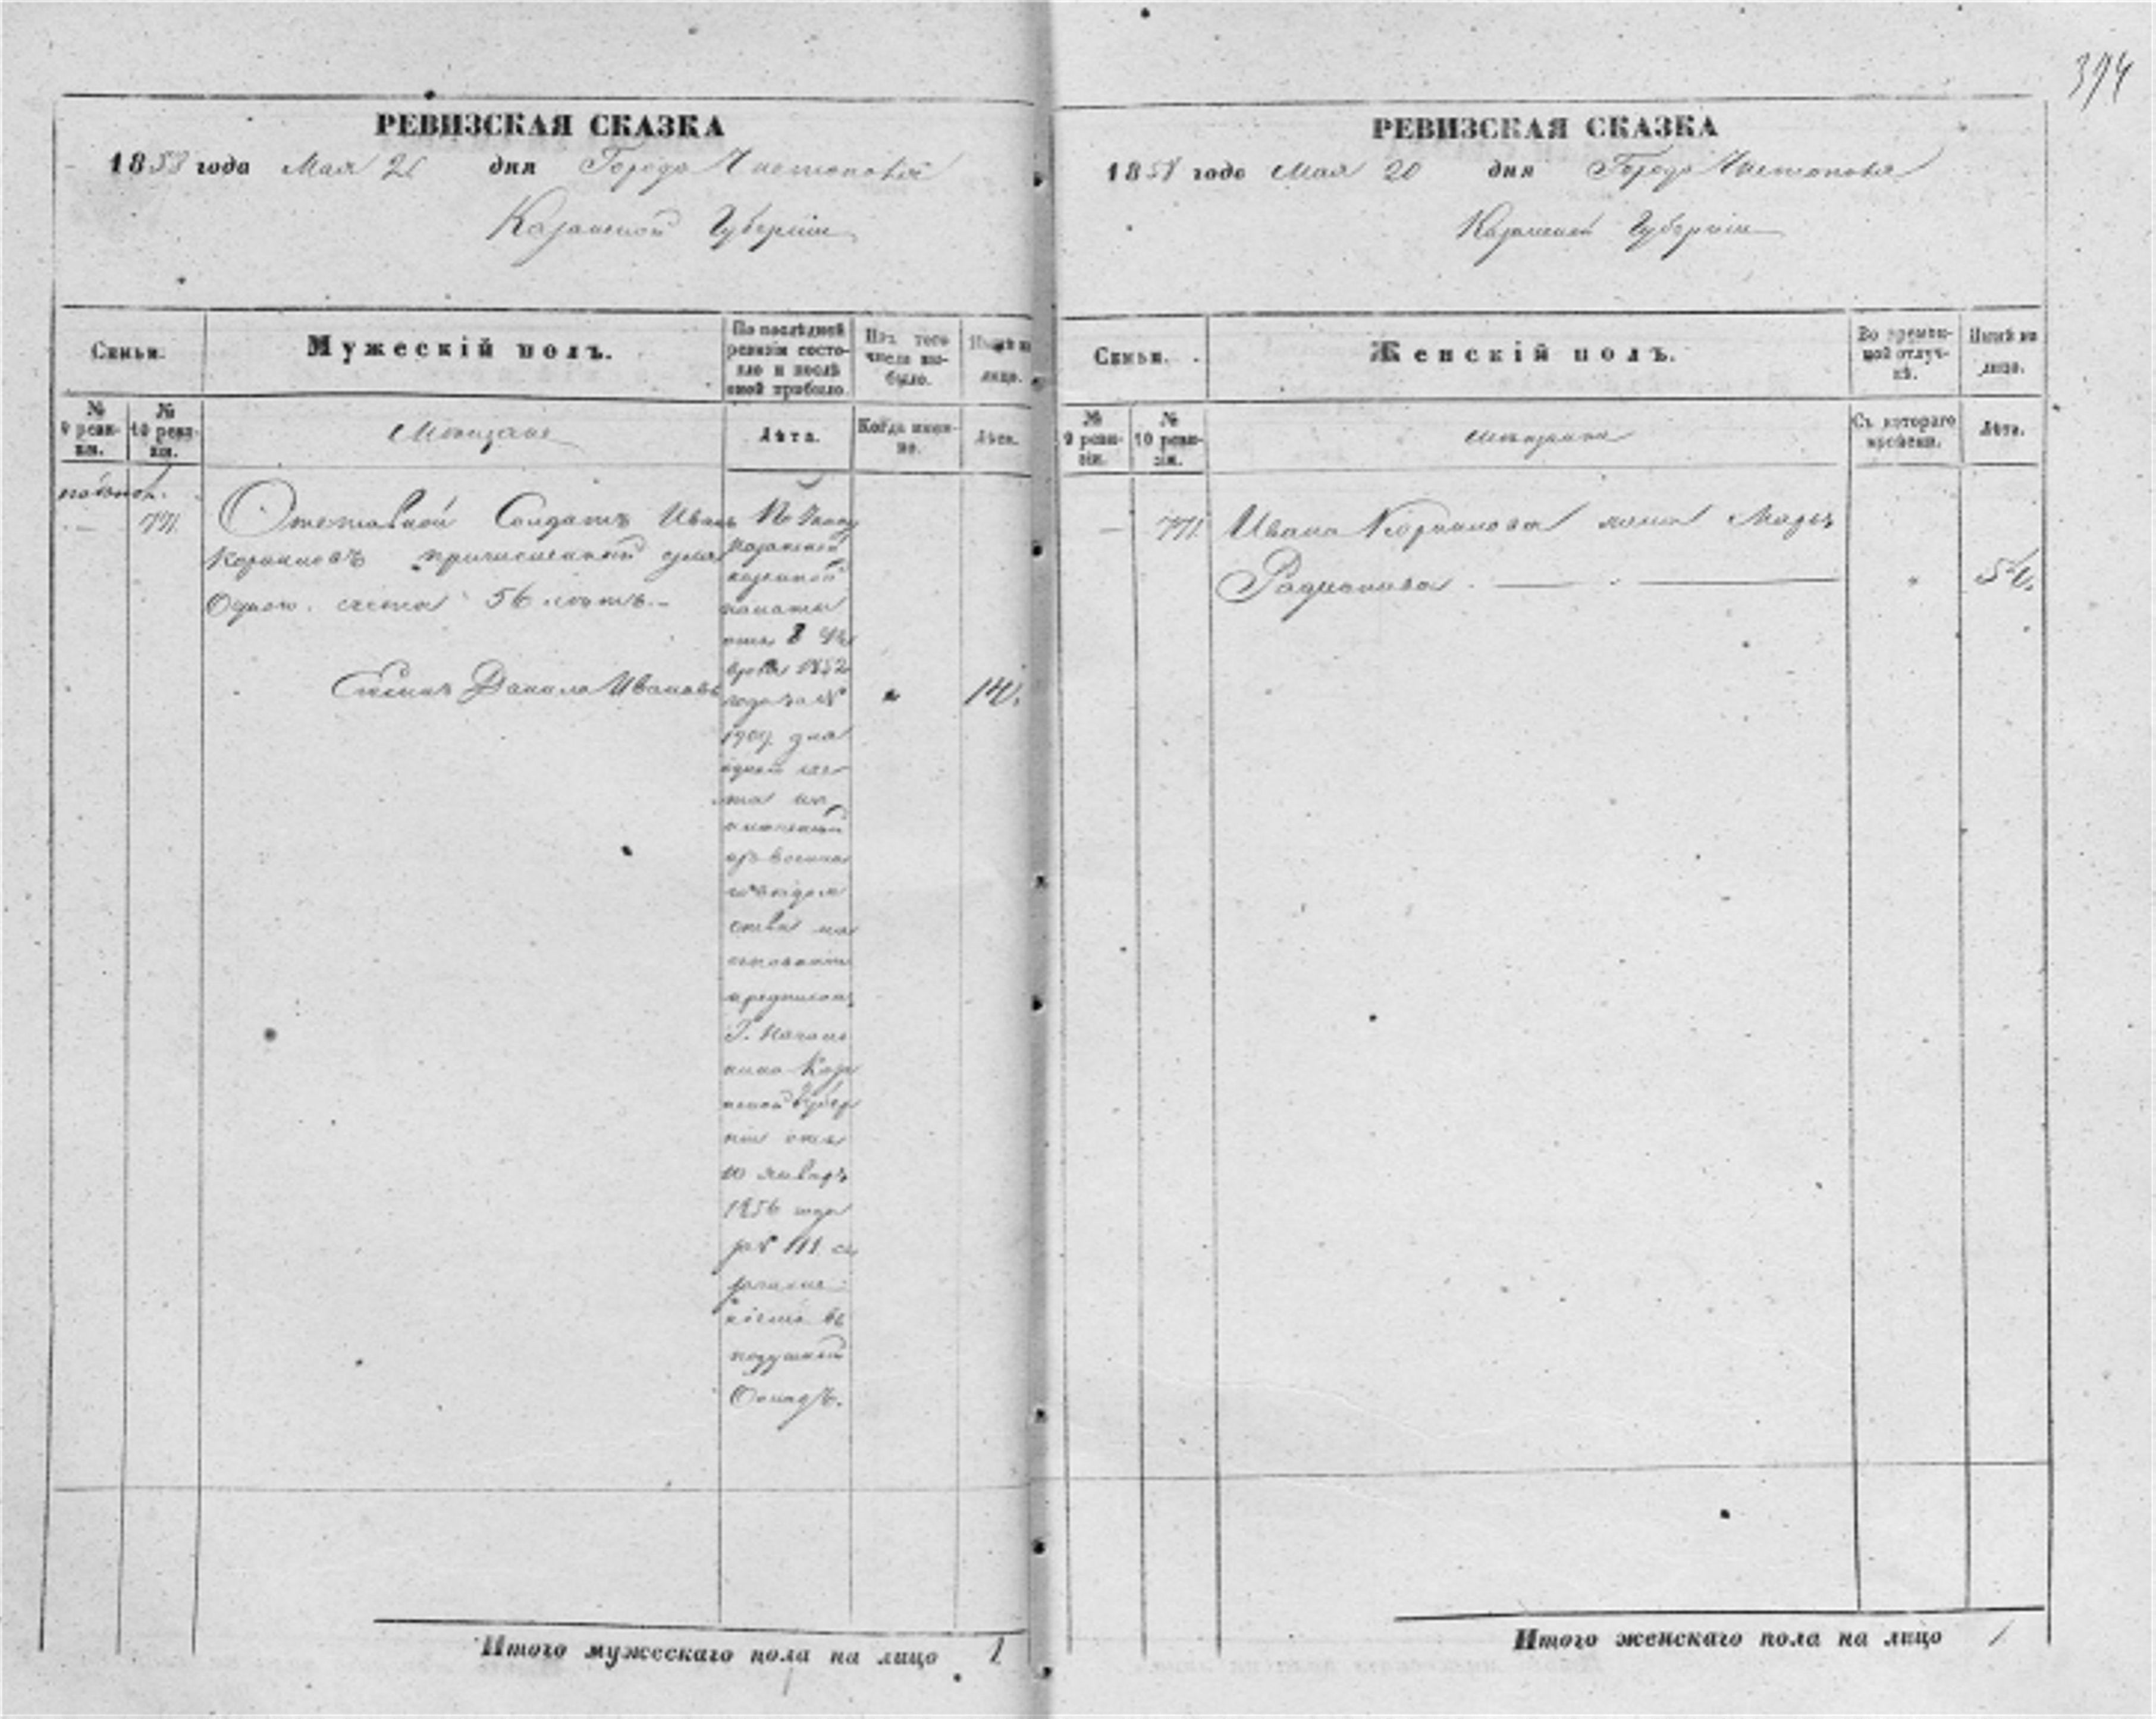 394
РЕВИЗСКАЯ СКАЗКА
1858 года Мая 21 дня Города Чистополя
Казанской Губерніи
Семьи.
Мужескій полъ.
По послѣдней ревизіи состояло и послѣ оной прибыло.
Изъ того числа выбыло.
Нынѣ на лицо.
№ 9 ревизіи.
№ 10 ревизіи.
Мещане
Лѣта.
Когда именно.
Лѣта.
771.
Отставной Солдатъ Иванъ
Корниловъ причисленный для
Одного счета 56 лѣтъ.
Сынъ Данило Ивановъ
14.
По Указу
Казанской
казенной
палаты
отъ 8
1852
года за №
1909 для
одной сче-
та
изъ военна
го вѣдом
ства на
основаніи
предписан.
Г. Началь
ника Каза
нской Губер
ніи отъ
10 январь
1856 года
за № 111
въ
подушный
Окладъ.
Итого мужескаго пола на лицо 1
РЕВИЗСКАЯ СКАЗКА
1858 года Мая 20 дня Города Чистополя
Казанской Губерніи
Семьи.
Женскій полъ.
Во временной отлучкѣ.
Нынѣ на лицо.
№ 9 ревизіи.
№ 10 ревизіи.
Мещанки
Съ котораго времени.
Лѣта.
— 771. Ивана Корнилова жена Марья
Радионова 54.
Итого женскаго пола на лицо 1